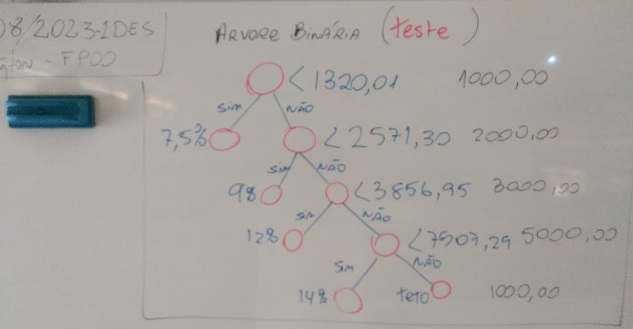 08/2023-1DES
- FPOO
ÁRVORE BINÁRIA (teste)
<1320,01 1000,00
SIM NÃO
7,5% <2571,30 2000,00
SIM NÃO
9% <3856,95 3000,00
SIM NÃO
12% <7507,29 5000,00
SIM NÃO
14% teto 1000,00